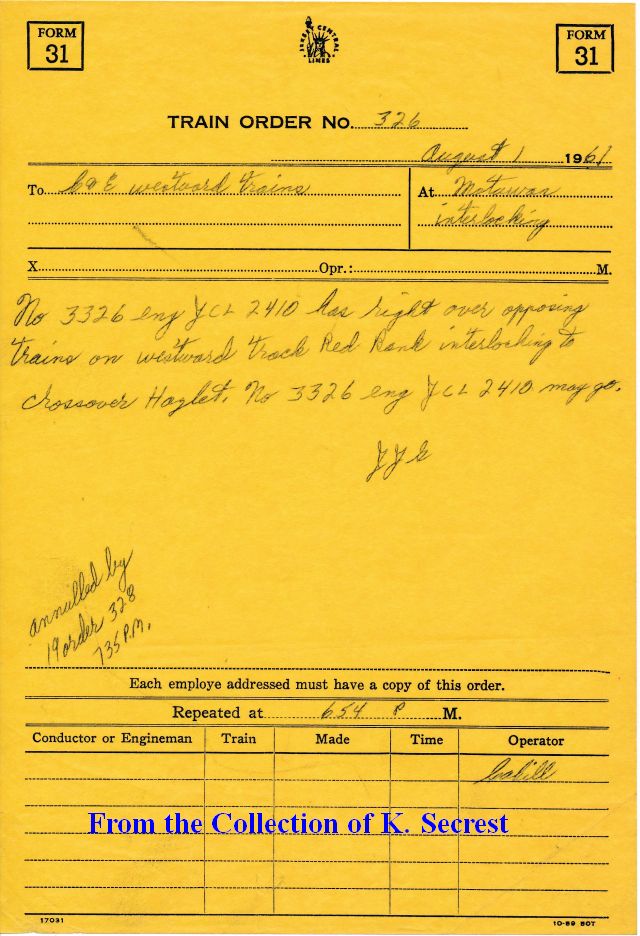 FORM
31
JERSEY CENTRAL
LINES
FORM
31
TRAIN ORDER No. 326
August 1 1961
To C&E westward trains
At Matawan
interlocking
X. Opr.: M.
No 3326 eng JCL 2410 has right over opposing
trains on westward track Red Bank interlocking to
crossover Hazlet. No 3326 eng JCL 2410 may go.
JJG
annulled by
19 order 328
735 P.M.
Each employe addressed must have a copy of this order.
Repeated at 654 P M.
Conductor or Engineman Train Made Time Operator
Cahill
From the Collection of K. Secrest
17031
10-59 BOT